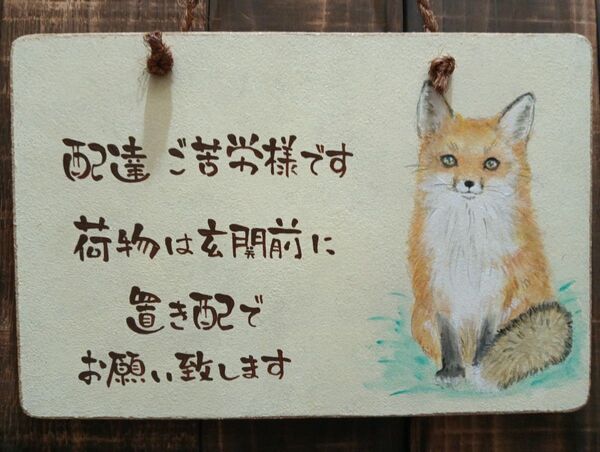 配達 ご苦労様です
荷物は玄関前に
置き配で
お願い致します